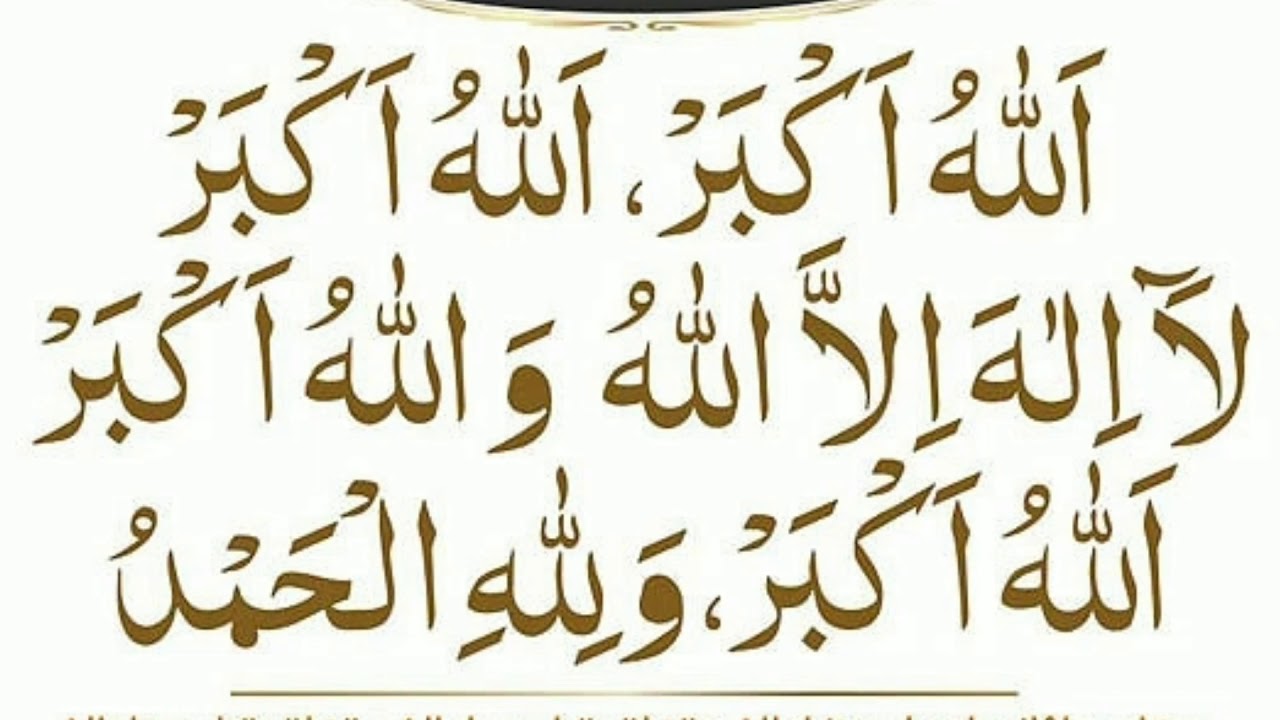 اَللّٰهُ اَكْبَرْ، اَللّٰهُ اَكْبَرْ
لَآ اِلٰهَ اِلَّا اللّٰهُ وَاللّٰهُ اَكْبَرْ
اَللّٰهُ اَكْبَرْ، وَلِلّٰهِ الْحَمْدُ